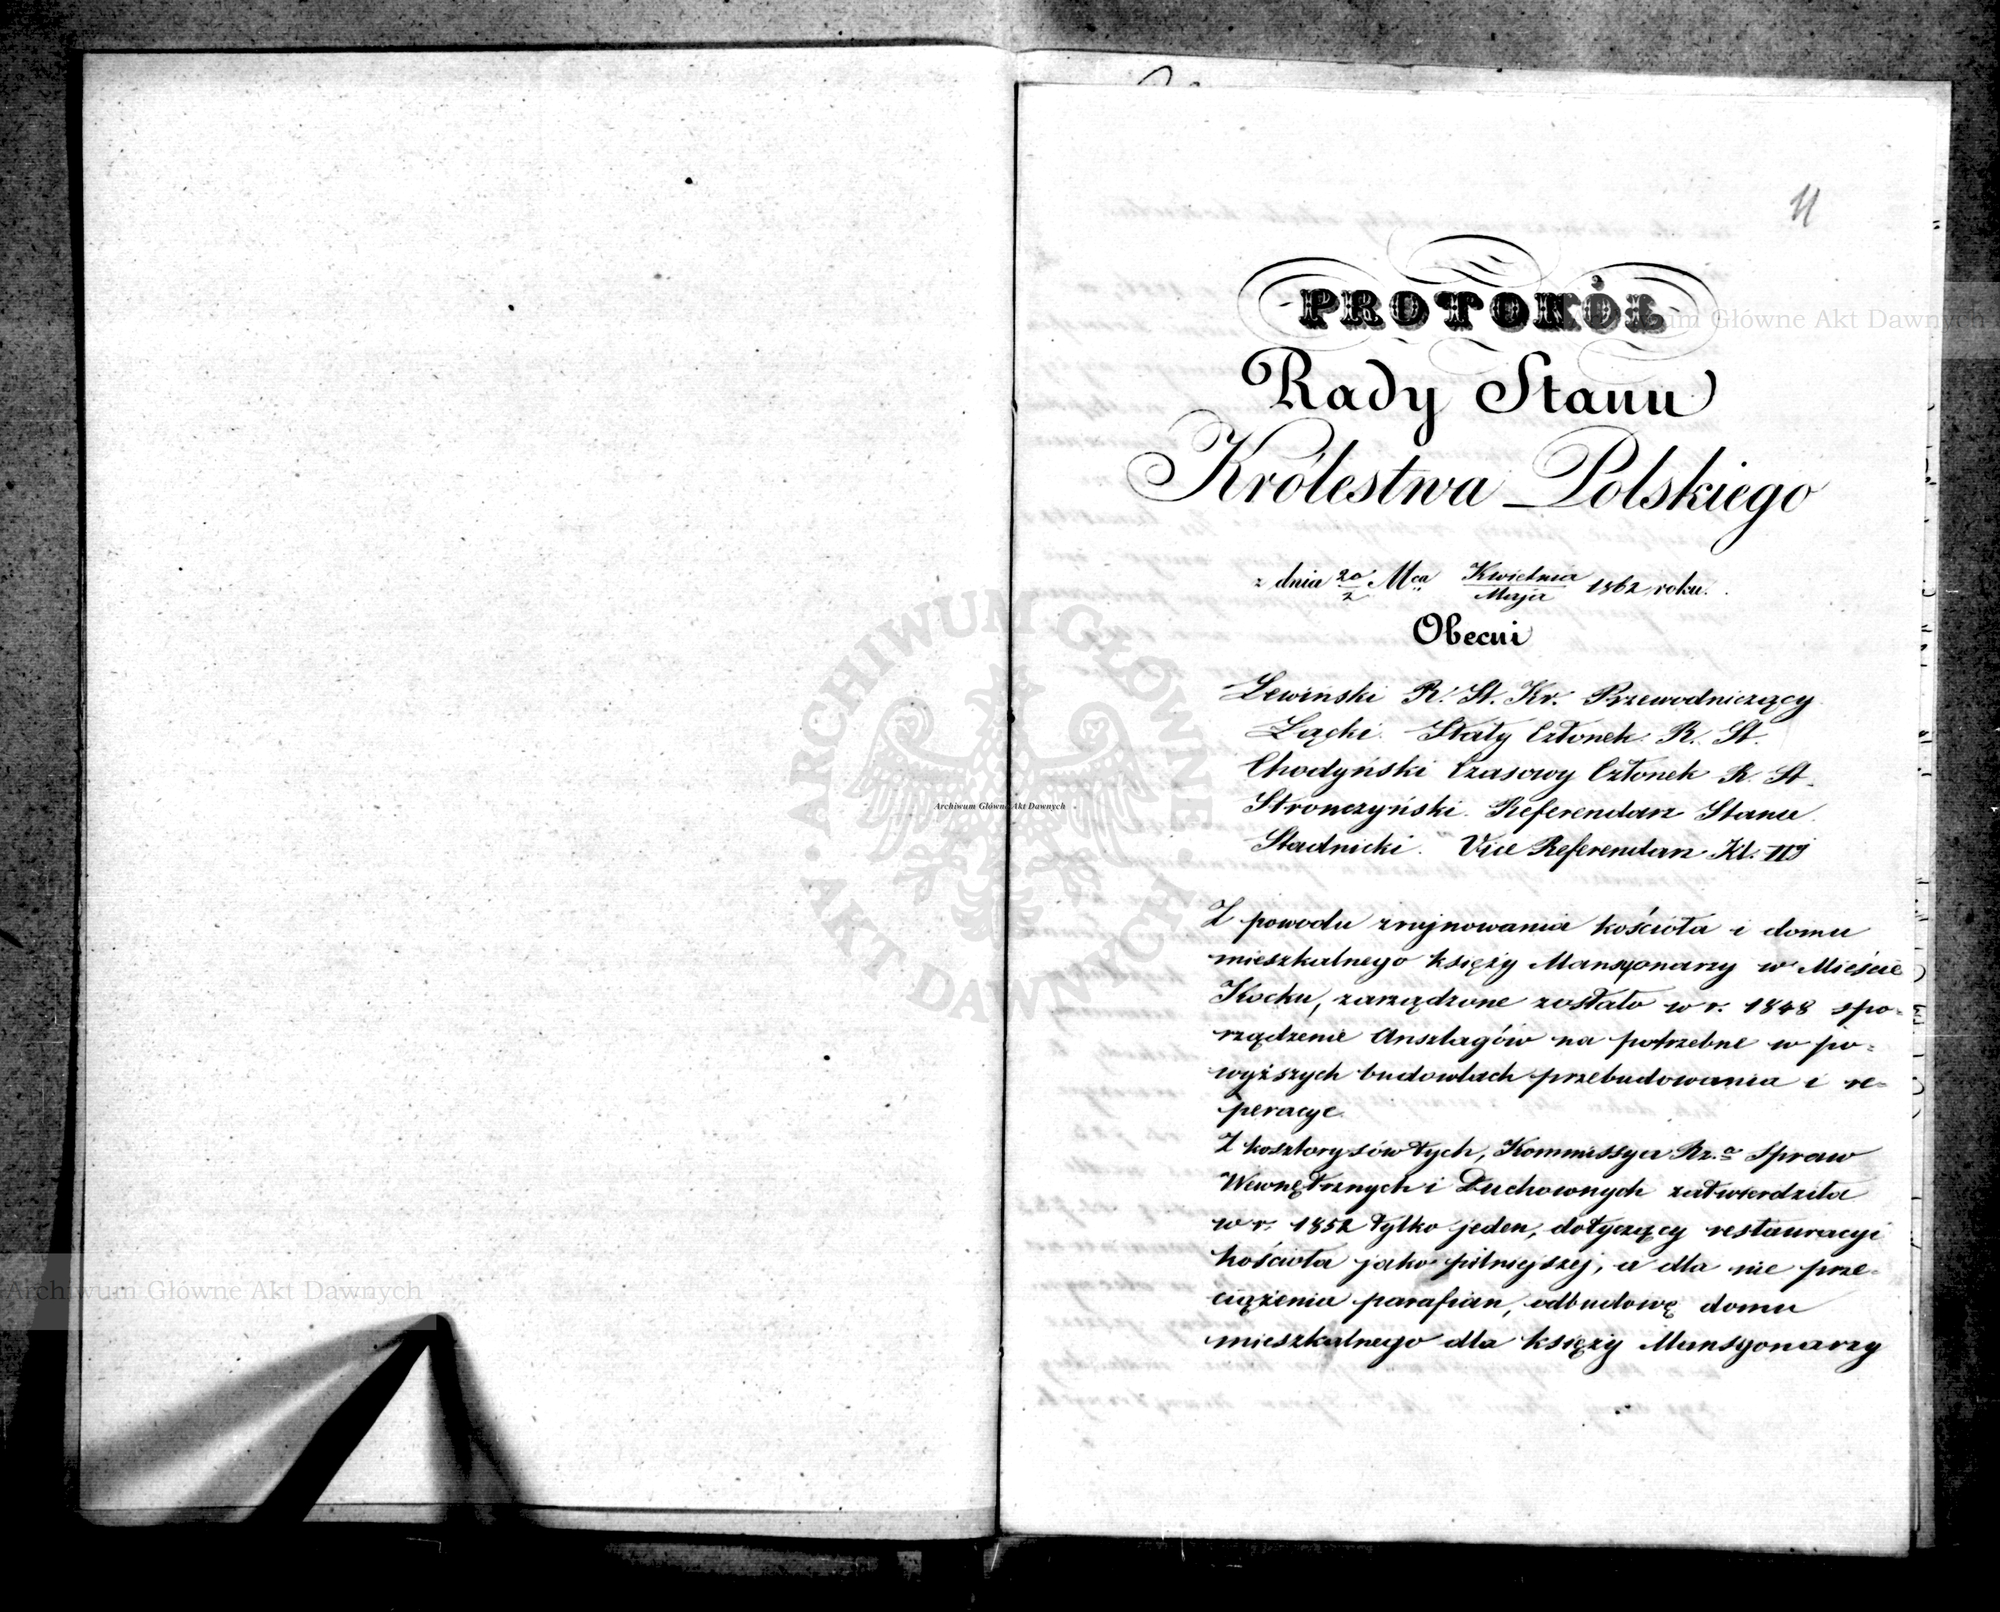 11
PROTOKÓŁ
Rady Stanu
Królestwa Polskiego
z dnia 20/2 Mca Kwietnia/Maja 1862 roku.
Obecni
Lewiński R. St. Kr. Przewodniczący
Łącki. Stały Członek R. St.
Chodyński Czasowy Członek R. St.
Stronczyński. Referendarz Stanu.
Stadnicki. Vice Referendarz Kl. III
Z powodu zrujnowania kościoła i domu
mieszkalnego księży Mansyonarzy w Mieście
Kocku, zarządzone zostało w r. 1848 spo-
rządzenie Anszlagów na potrzebne w po-
wyższych budowlach przebudowania i re-
peracye.
Z kosztorysów tych, Kommissya Rz.a Spraw
Wewnętrznych i Duchownych zatwierdziła
w r. 1852 tylko jeden, dotyczący restauracyi
kościoła jako pilniejszej, a dla nie prze-
ciążenia parafian, odbudowę domu
mieszkalnego dla księży Mansyonarzy
Archiwum Główne Akt Dawnych
ARCHIWUM GŁÓWNE
AKT DAWNYCH
Archiwum Główne Akt Dawnych
um Główne Akt Dawnych